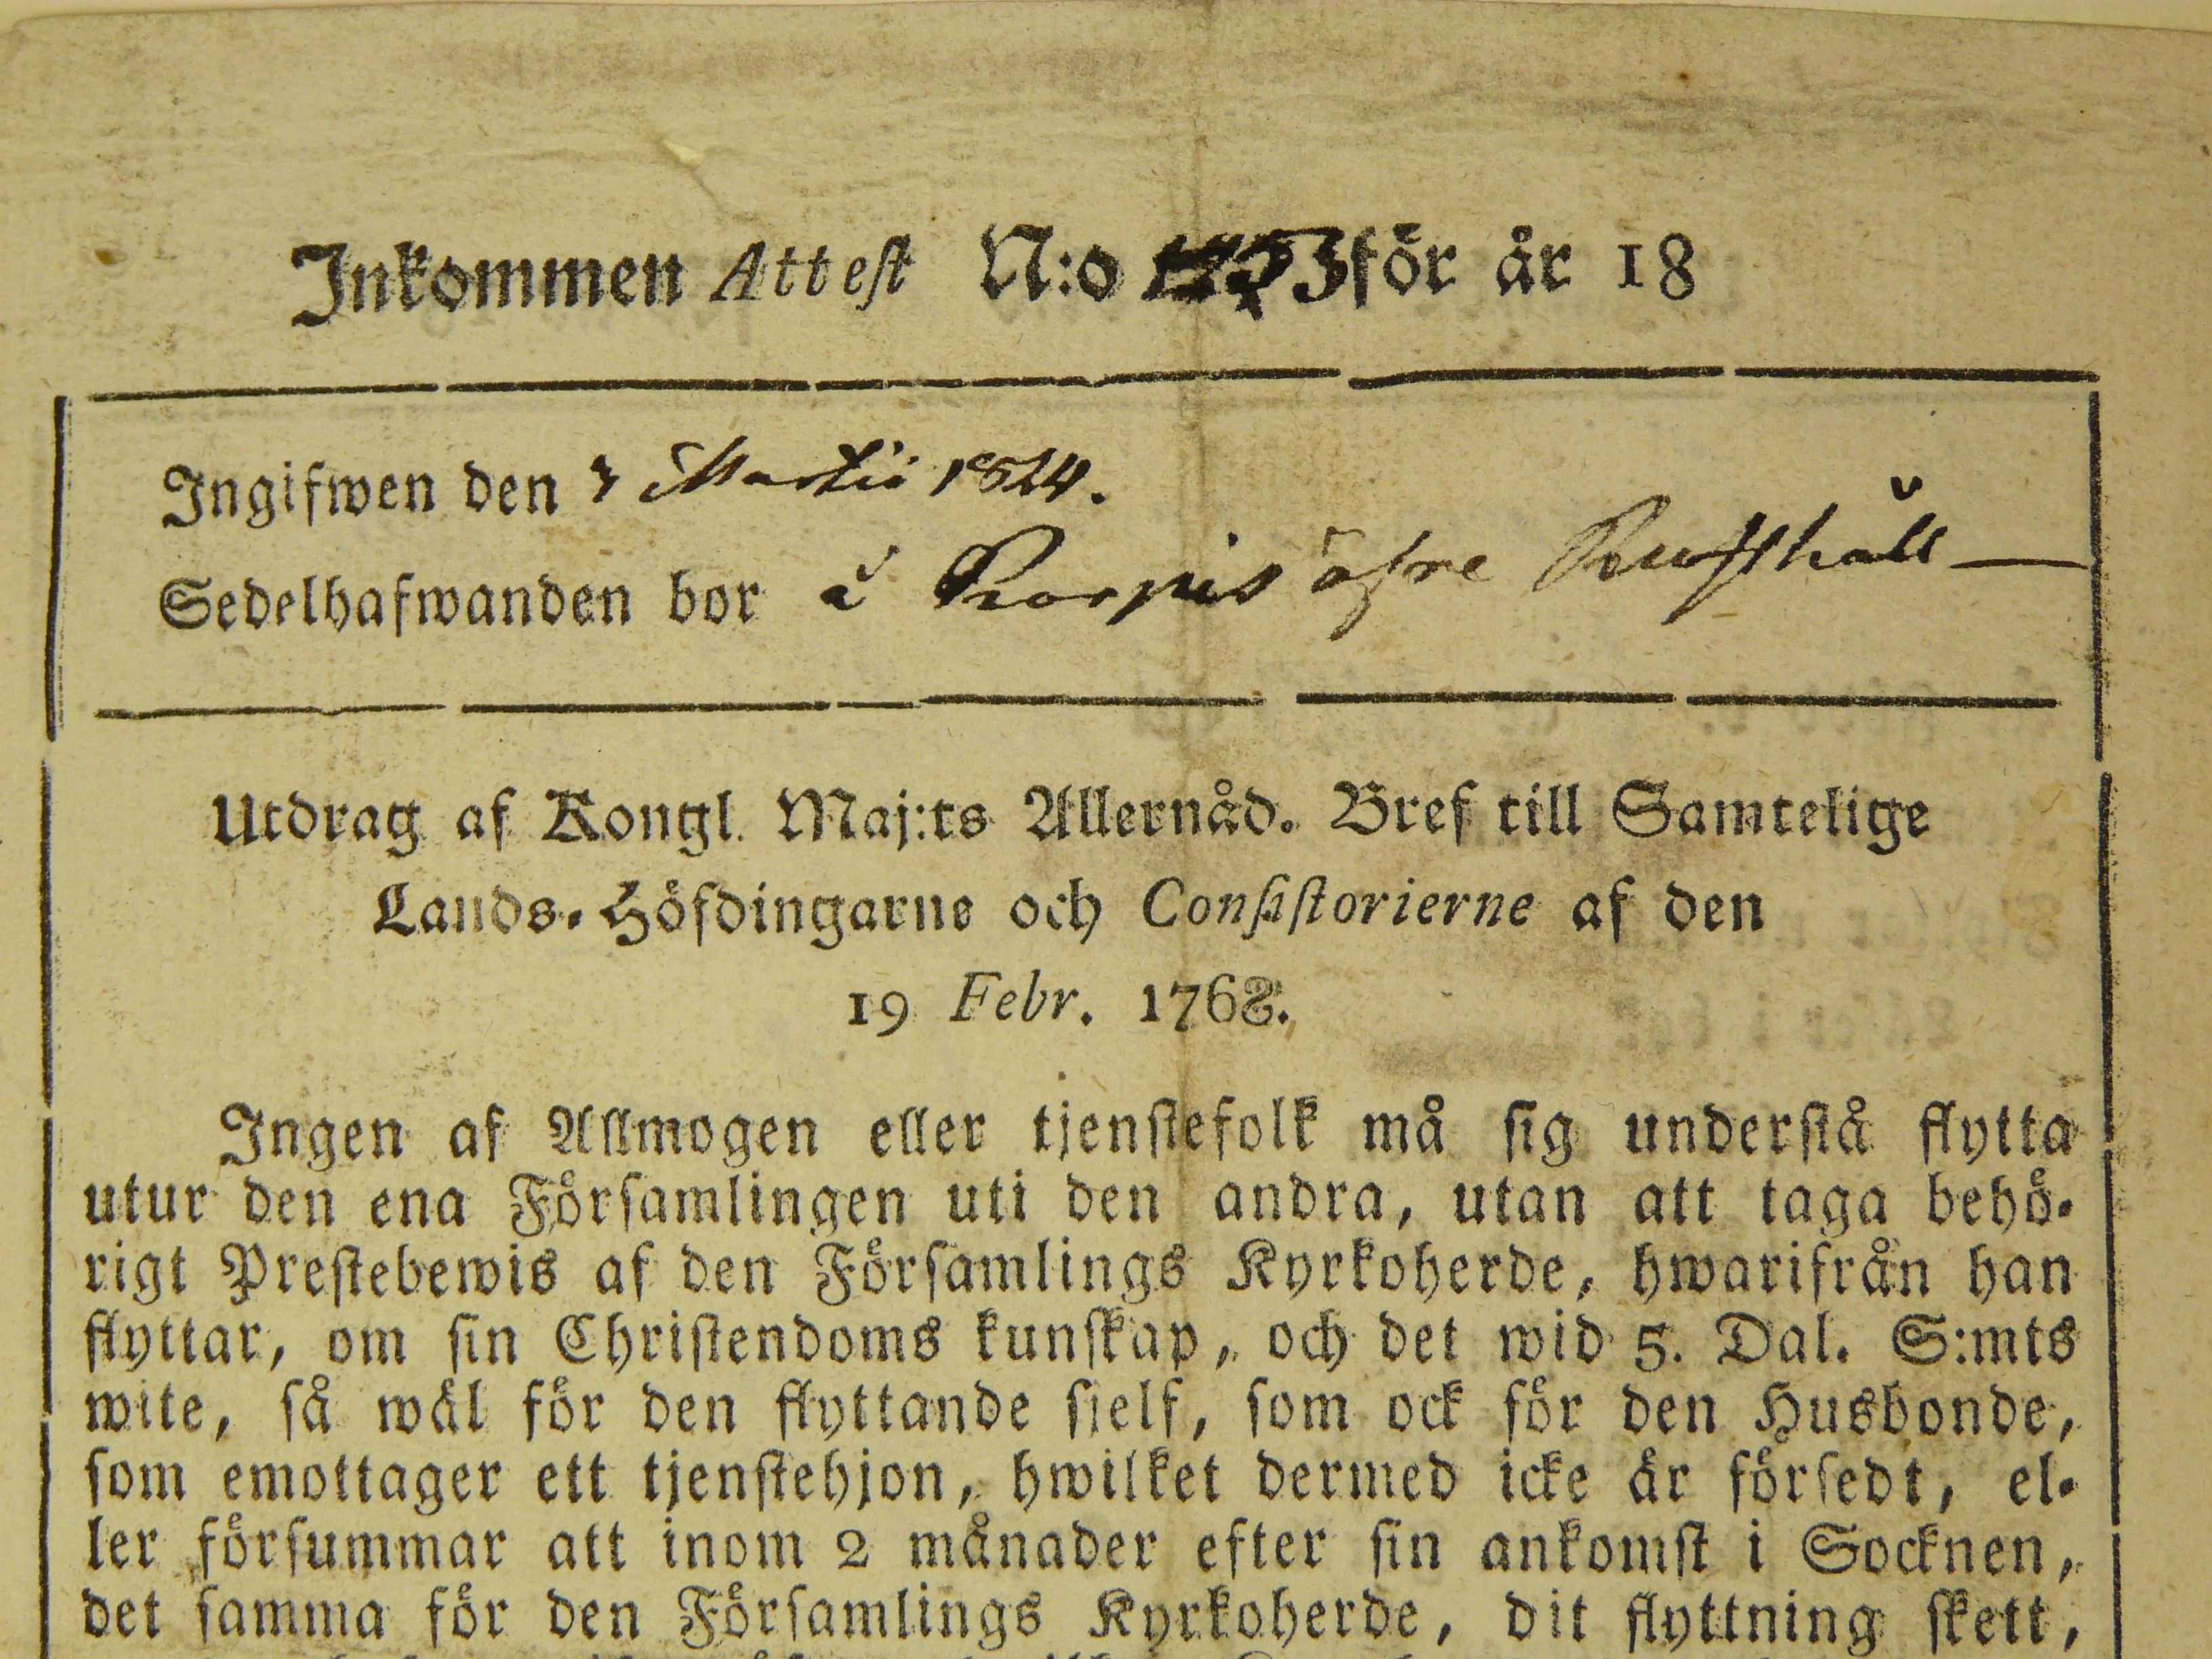 Inkommen Attest N:o för år 18
Ingifwen den 3 Martii 1824.
Sedelhafwanden bor å Korpis öfre Rusthåll
Utdrag af Kongl. Maj:ts Allernåd. Bref till Samtelige
Lands-Höfdingarne och Consistorierne af den
19 Febr. 1768.
Ingen af Allmogen eller tjenstefolk må sig understå flytta
utur den ena Församlingen uti den andra, utan att taga behö-
rigt Prestebewis af den Församlings Kyrkoherde, hwarifrån han
flyttar, om sin Christendoms kunskap, och det wid 5. Dal. S:mts
wite, så wäl för den flyttande sjelf, som ock för den Husbonde,
som emottager ett tjenstehjon, hwilket dermed icke är försedt, el-
ler försummar att inom 2 månader efter sin ankomst i Socknen,
det samma för den Församlings Kyrkoherde, dit flyttning skett,